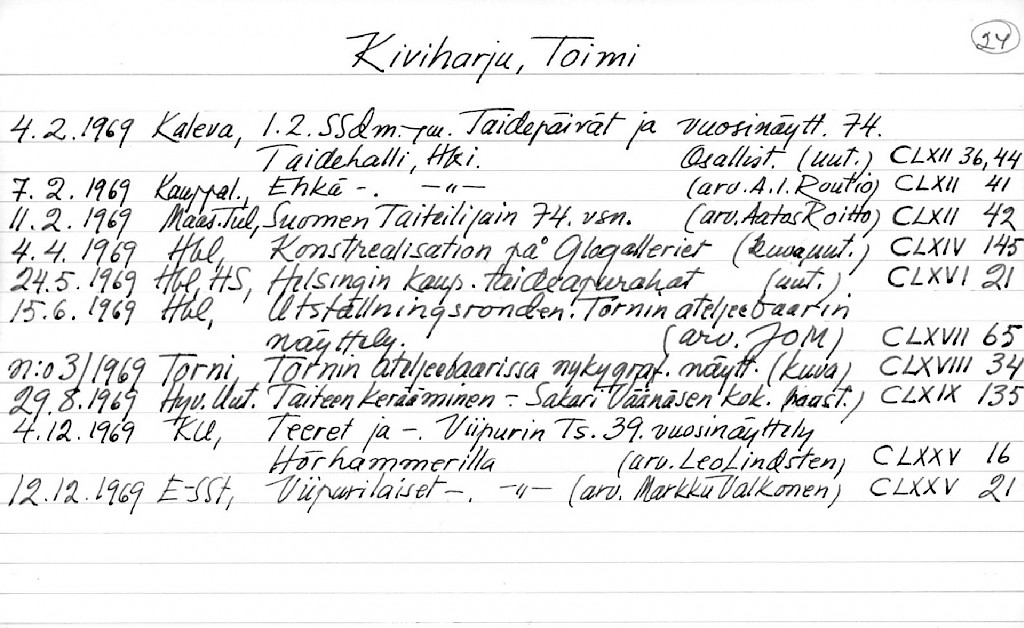 Kiviharju, Toimi
24
4.2.1969 Kaleva, 1.2. SS&m. Taidepäivät ja vuosinäytt. 74.
Taidehalli, Hki. Osallist. (uut.) CLXII 36,44
7.2.1969 Kauppal., Ehkä -. -"- (arv. A.I. Routio) CLXII 41
11.2.1969 Maas.Tul, Suomen Taiteilijain 74. vsn. (arv. Aatos Roitto) CLXII 42
4.4.1969 Hbl, Konstrealisation på Glogalleriet (kuva, uut.) CLXIV 145
24.5.1969 Hbl, HS, Helsingin kaup. taideapurahat (uut.) CLXVI 21
15.6.1969 Hbl, Utställningsronden: Tornin ateljeebaarin
näyttely. (arv. JOM) CLXVII 65
n:o 3/1969 Torni, Tornin ateljeebaarissa nykygraf. näytt. (kuva) CLXVIII 34
29.8.1969 Hyv. Uut. Taiteen kerääminen - Sakari Väänäsen kok. (haast.) CLXIX 135
4.12.1969 KU, Teeret ja -. Viipurin Ts. 39. vuosinäyttely
Hörhammerilla (arv. Leo Lindsten) CLXXV 16
12.12.1969 E-SSt, Viipurilaiset -. -"- (arv. Markku Valkonen) CLXXV 21